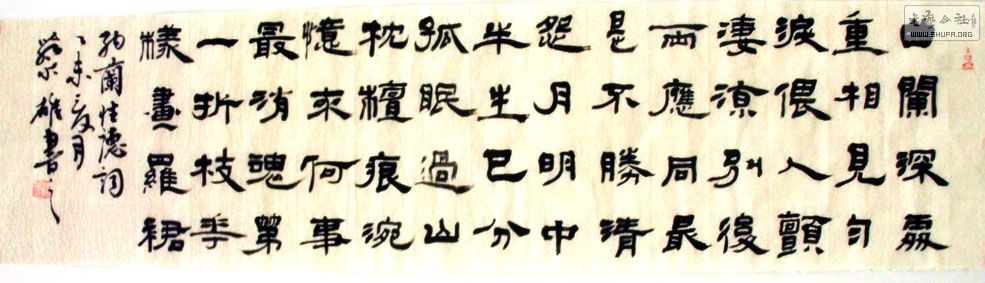 曲闌深處
重相見勻
淚偎人顫
淒涼別後
兩應同最
是不勝清
怨月明中
半生已分
孤眠過山
枕檀痕涴
憶來何事
最消魂第
一折枝花
樣畫羅裙
納蘭性德詞
未夏月
雄書之
公社
WWW.SHUFA.ORG